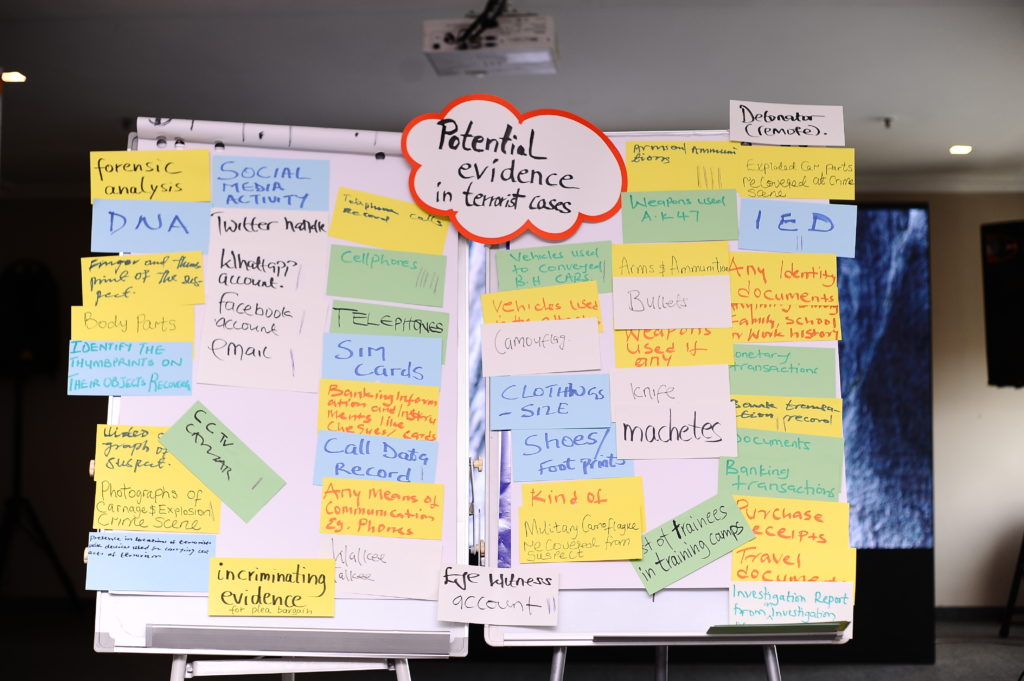 Potential
evidence
in terrorist cases
forensic
analysis
DNA
print of the sus-
pect.
Body Parts
IDENTIFY THE
THUMBPRINTS ON
THEIR OBJECTS RECOVERED
SOCIAL
MEDIA
ACTIVITY
Twitter handle
Whatsapp
account.
facebook
account
email
Telephone calls
Record
Cellphones
TELEPHONES
SIM
Cards
Banking Inform
ation and Instru
ments like
Cheques/cards
Call Data
Record
Any Means of
Communication
Eg. Phones
Walkee
Talkee
CCTV
Video
graph of
Suspect.
Photographs of
Carnage & Explosion/
Crime Scene
incriminating
evidence
for plea bargain
Eye Witness
account
Vehicles used
to conveyed/
B.H CARS.
Vehicles Used
Camouflag.
CLOTHINGS
- SIZE
Shoes/
Foot prints
Kind of
Military Camoflague
Recovered from
suspect
Arms and Ammuni
tions
Weapons used
A.K 47
Arms & Ammunition
Bullets
Weapons
Used if
any
Knife
machetes
st of trainees
in training camps
Detonator
(remote).
Exploded Car parts
Recovered at Crime
Scene
IED
Any Identity
documents
Family, School
or Work history
onetary
transactions
tion record
Documents
Banking
transactions
Purchase
receipts
Travel
document
Investigation Report
from Investigation